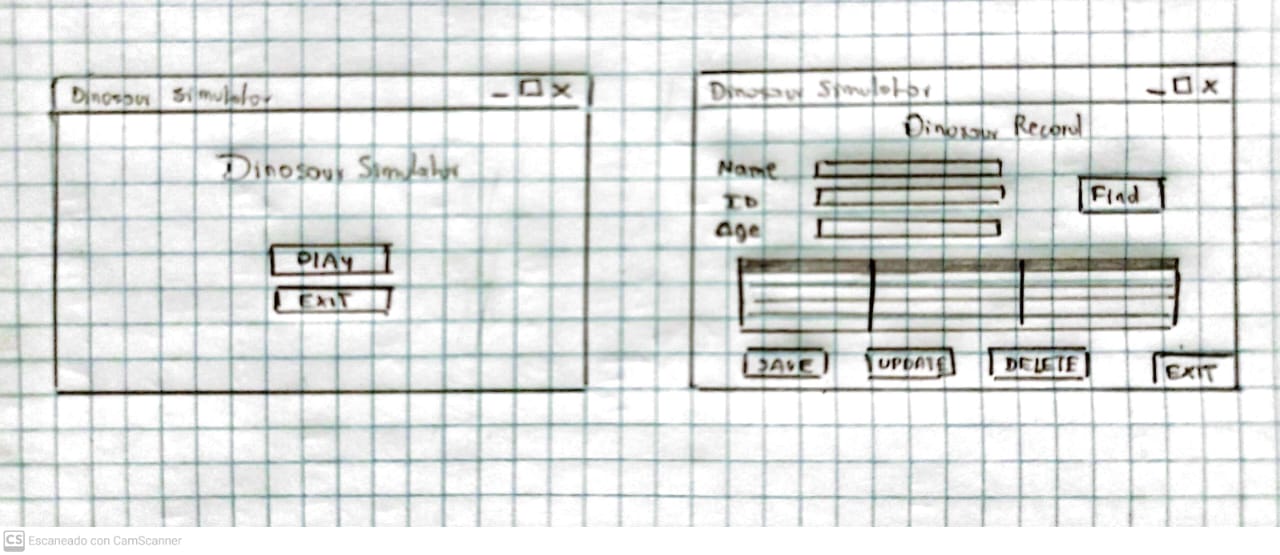 Dinosaur Simulator
Dinosaur Simulator
PLAY
EXIT
Dinosaur Simulator
Dinosaur Record
Name
ID
Find
Age
SAVE
UPDATE
DELETE
EXIT
CS Escaneado con CamScanner